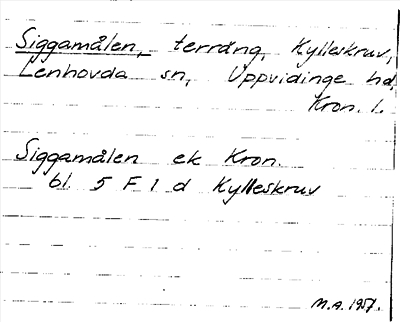 Siggamålen, terräng, Kylleskruv,
Lenhovda sn, Uppvidinge hd,
Kron. l.
Siggamålen ek Kron.
bl. 5 F 1 d Kylleskruv
M.A. 1957.